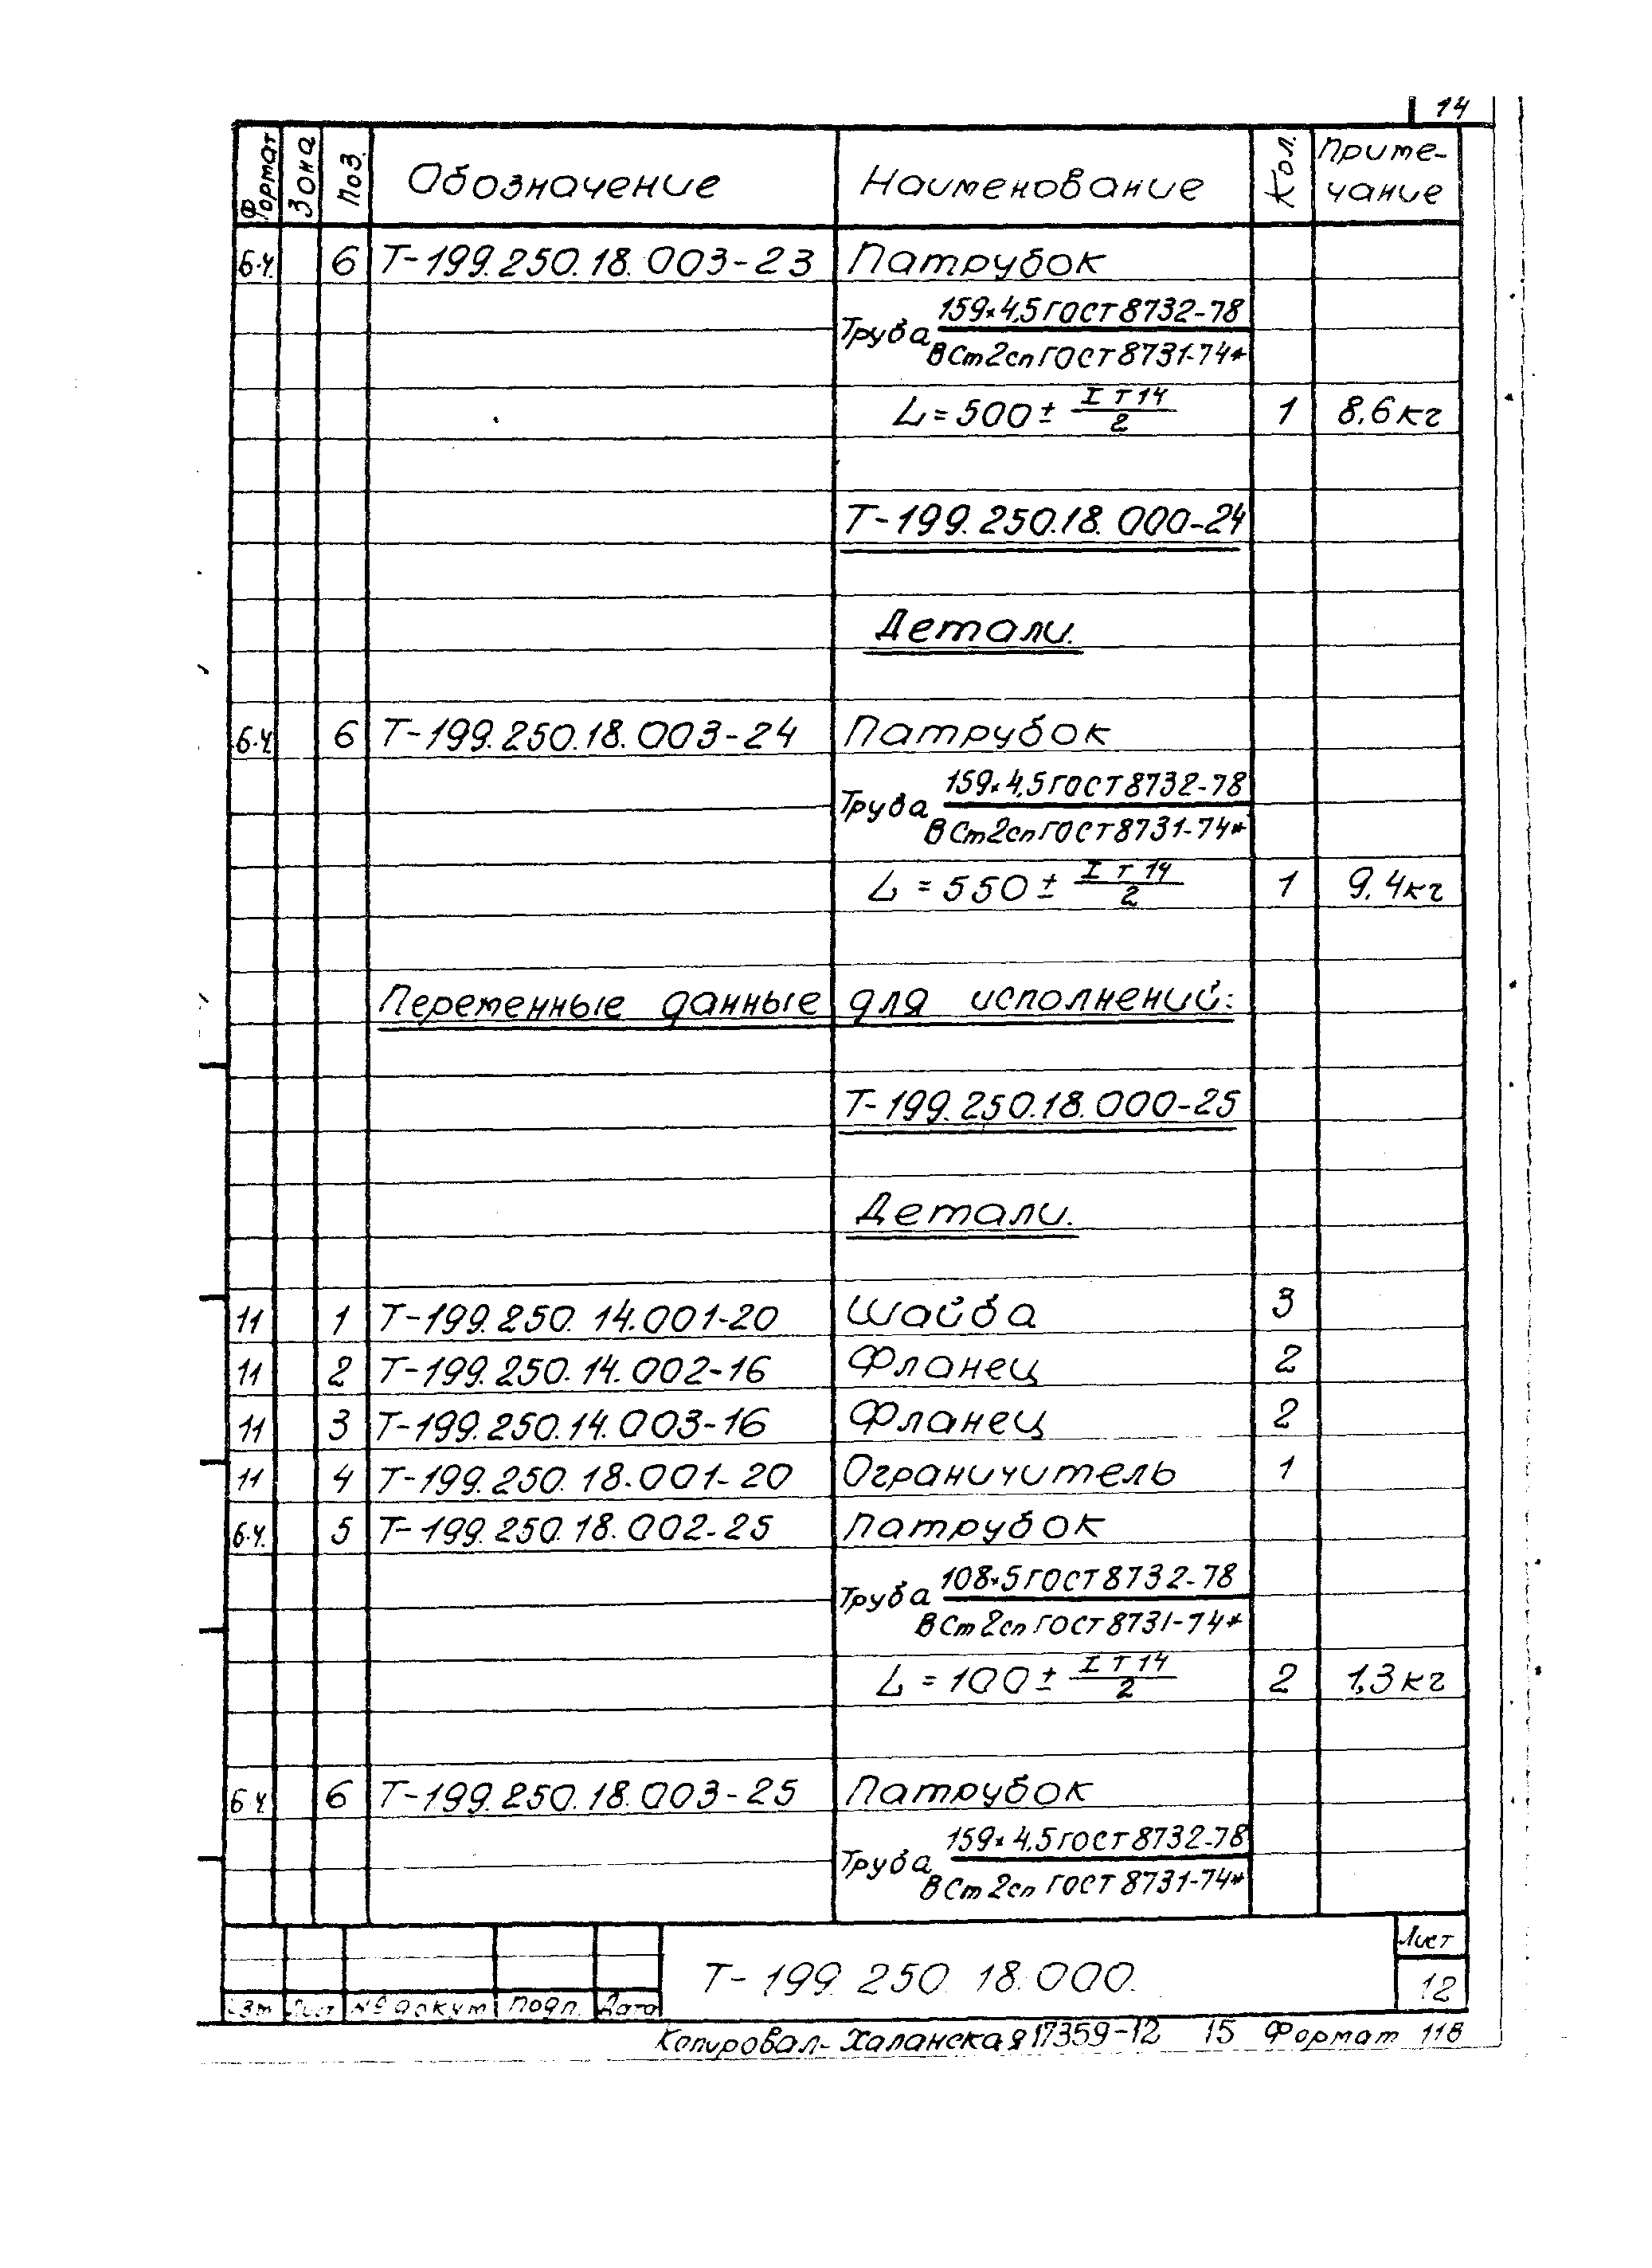 14
Формат Зона Поз. Обозначение Наименование Кол. Приме-
чание
б.ч. 6 Т-199.250.18.003-23 Патрубок
Труба 159×4,5 ГОСТ 8732-78
ВСт2сп ГОСТ 8731-74*
L = 500 ± IT14/2 1 8,6 кг
Т-199.250.18.000-24
Детали.
б.ч. 6 Т-199.250.18.003-24 Патрубок
Труба 159×4,5 ГОСТ 8732-78
ВСт2сп ГОСТ 8731-74*
L = 550 ± IT14/2 1 9,4 кг
Переменные данные для исполнений:
Т-199.250.18.000-25
Детали.
11 1 Т-199.250.14.001-20 Шайба 3
11 2 Т-199.250.14.002-16 Фланец 2
11 3 Т-199.250.14.003-16 Фланец 2
11 4 Т-199.250.18.001-20 Ограничитель 1
б.ч. 5 Т-199.250.18.002-25 Патрубок
Труба 108×5 ГОСТ 8732-78
ВСт2сп ГОСТ 8731-74*
L = 100 ± IT14/2 2 1,3 кг
б.ч. 6 Т-199.250.18.003-25 Патрубок
Труба 159×4,5 ГОСТ 8732-78
ВСт2сп ГОСТ 8731-74*
Изм Лист № докум Подп. Дата
Т-199.250.18.000.
Лист
12
Копировал- Халанская 17359-12 15 Формат 11В